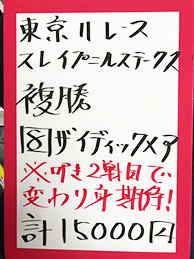 東京11レース
スレイプニルステークス
複勝
8 ザイディックメア
※叩き2戦目で
変わり身期待!
計15000円